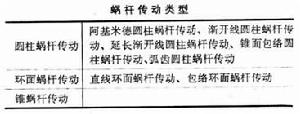 蜗杆传动类型
阿基米德圆柱蜗杆传动、渐开线圆柱蜗杆传
圆柱蜗杆传动
动、延长渐开线圆柱蜗杆传动、锥面包络圆
柱蜗杆传动、弧齿圆柱蜗杆传动
环面蜗杆传动
直线环面蜗杆传动、包络环面蜗杆传动
锥蜗杆传动